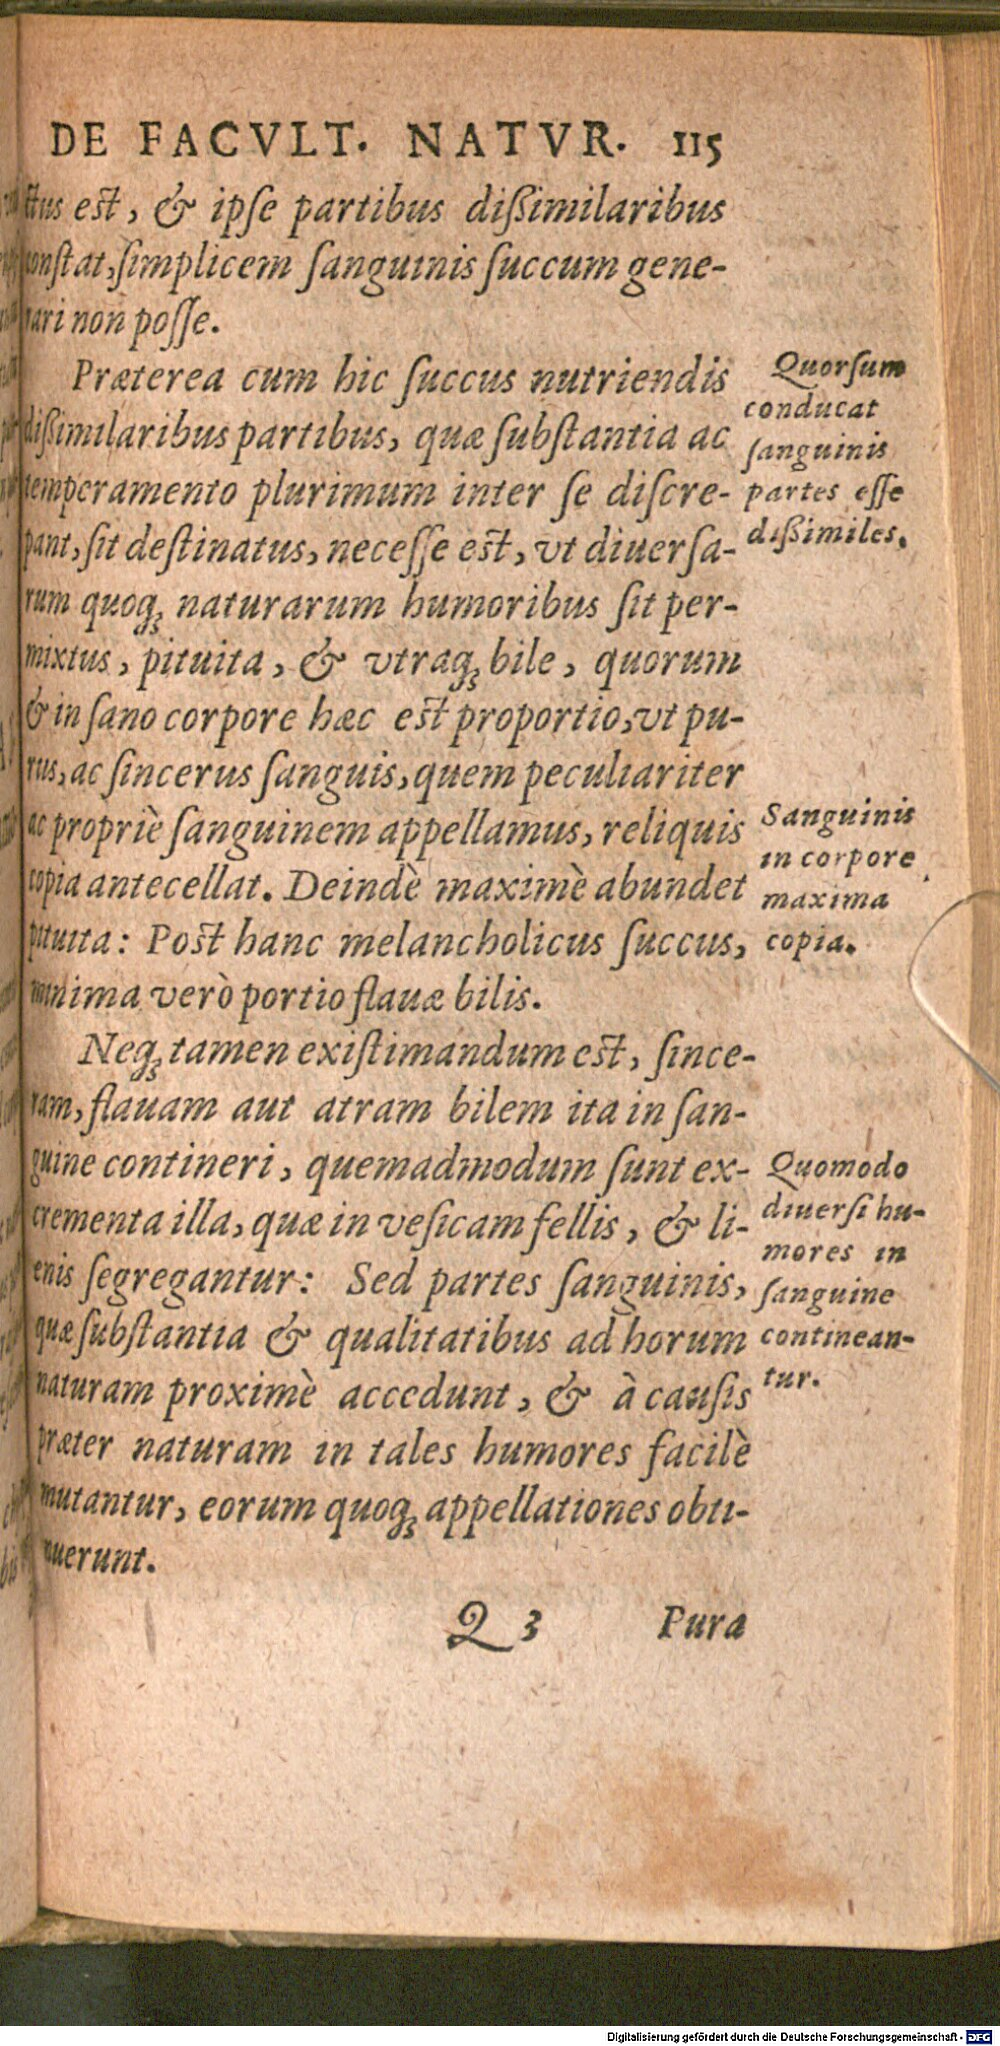 DE FACVLT. NATVR. 115
ctus est, & ipſe partibus dißimilaribus
conſtat, ſimplicem ſanguinis ſuccum gene-
rari non poſſe.
Præterea cum hic ſuccus nutriendis
dißimilaribus partibus, quæ ſubſtantia ac
temperamento plurimum inter ſe diſcre-
pant, ſit deſtinatus, neceſſe eſt, vt diuerſa-
rum quoq; naturarum humoribus ſit per-
mixtus, pituita, & vtraq; bile, quorum
& in ſano corpore hæc eſt proportio, vt pu-
rus, ac ſincerus ſanguis, quem peculiariter
ac propriè ſanguinem appellamus, reliquis
copia antecellat. Deindè maximè abundet
pituita: Poſt hanc melancholicus ſuccus,
minima verò portio flauæ bilis.
Neq; tamen exiſtimandum eſt, ſince-
ram, flauam aut atram bilem ita in ſan-
guine contineri, quemadmodum ſunt ex-
crementa illa, quæ in veſicam fellis, & li-
enis ſegregantur: Sed partes ſanguinis,
quæ ſubſtantia & qualitatibus ad horum
naturam proximè accedunt, & à cauſis
præter naturam in tales humores facilè
mutantur, eorum quoq; appellationes obti-
nuerunt.
Q 3 Pura
Quorſum
conducat
ſanguinis
partes eſſe
dißimiles.
Sanguinis
in corpore
maxima
copia.
Quomodo
diuerſi hu-
mores in
ſanguine
continean-
tur.
Digitalisierung gefördert durch die Deutsche Forschungsgemeinschaft - DFG